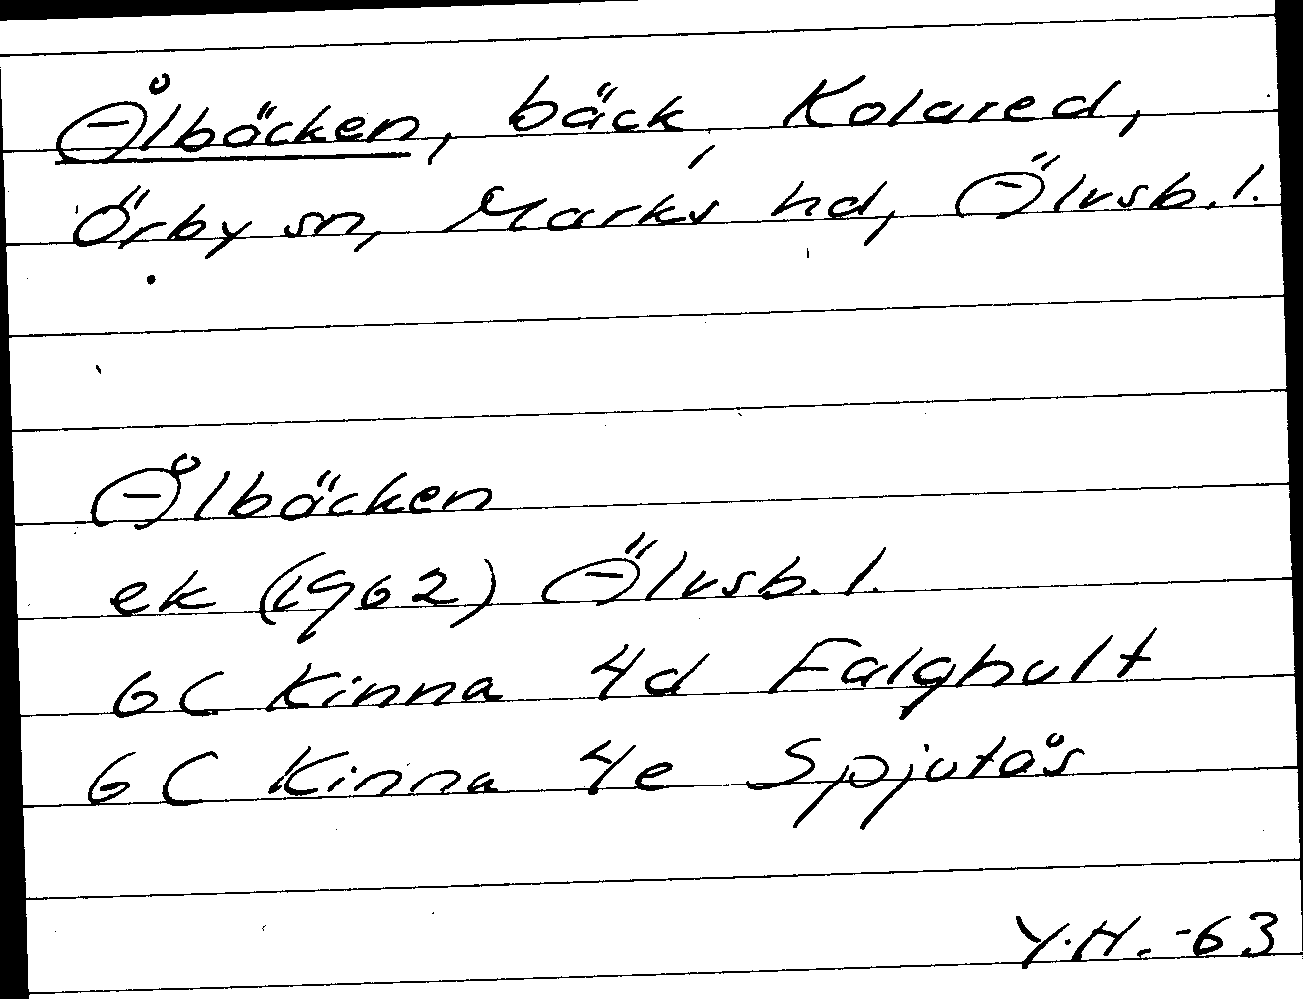 Ålbäcken, bäck, Kolared,
Örby sn, Marks hd, Älvsb. l.
Ålbäcken
ek (1962) Älvsb. l.
6C Kinna 4d Falghult
6C Kinna 4e Spjutås
Y.H. -63